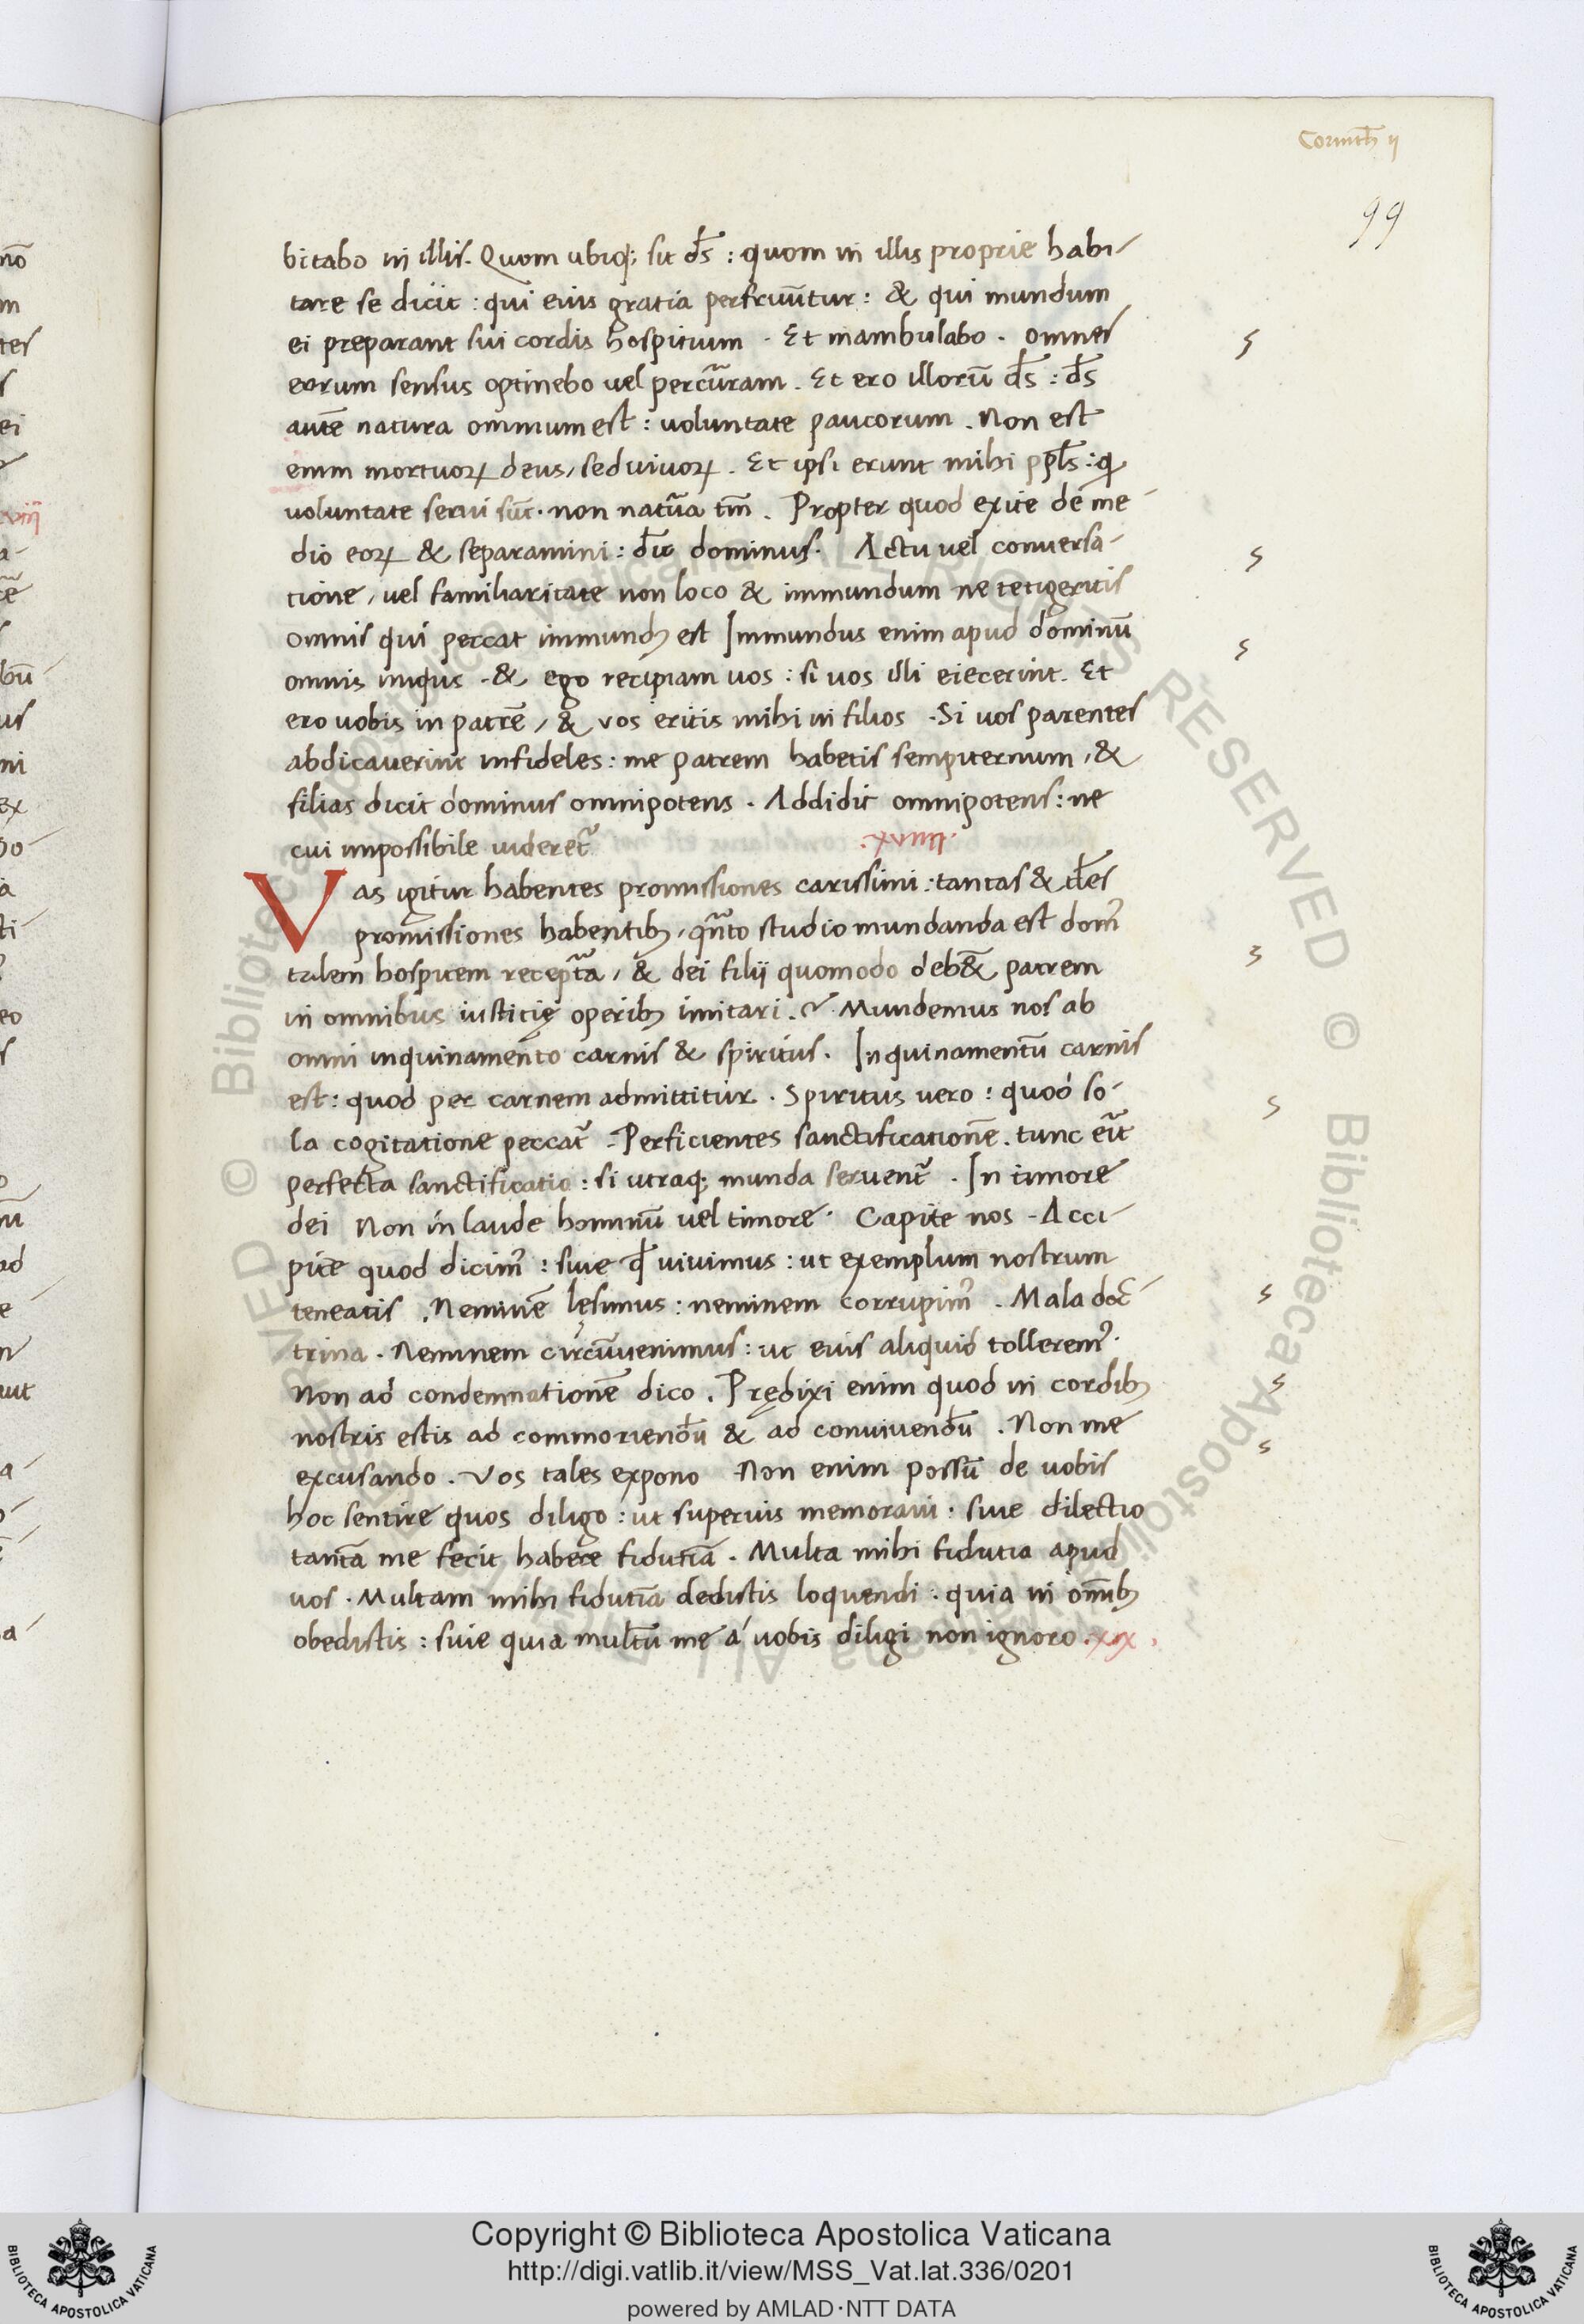 Corinth̄ ij
99
bitabo in illis. Quom ubiq; sit ds̄ : quom in illis proprie habi-
tare se dicit : qui eius gratia perfruūtur : & qui mundum
ei preparant sui cordis hospitium . Et inambulabo . omnes
eorum sensus optinebo uel percūram . Et ero illorū ds̄ : ds̄
autē natura omnium est : uoluntate paucorum . Non est
enim mortuoꝝ deus, sed uiuoꝝ . Et ipsi erunt mihi ppls̄ : ꝗ
uoluntate serui sūt . non natūa tm̄ . Propter quod exite de me-
dio eoꝝ & separamini : dīc dominus . Actu uel conuersa-
tione, uel familiaritate non loco & immundum ne tetigeritis
omnis qui peccat immundꝫ est Immundus enim apud dominū
omnis iniqus . & ego recipiam uos : si uos illi eiecerint . Et
ero uobis in patrē, & vos eritis mihi in filios . Si uos parentes
abdicauerint infideles : me patrem habetis sempiternum, &
filias dicit dominus omnipotens . Addidit omnipotens : ne
cui impossibile uideret᷑ .xviiii.
Vas igitur habentes promissiones carissimi : tantas & tl̄es
promissiones habentibꝫ, qn̄to studio mundanda est domꝰ
talem hospitem recept̄a, & dei filij quomodo deb&̄ patrem
in omnibus iusticię operibꝫ imitari . Mundemus nos ab
omni inquinamento carnis & spiritus . Inquinamentū carnis
est : quod per carnem admittitur . Spiritus uero : quod so-
la cogitatione peccat᷑ . Perficientes sanctificationē . tunc eīt
perfecta sanctificatio : si utraq; munda seruent᷑ . In timore
dei Non in laude hominū uel timore . Capite nos . Acci-
pite quod dicimꝰ : siue ꝙ uiuimus : ut exemplum nostrum
teneatis . Neminē lęsimus : neminem corrupimꝰ . Mala doc-
trina . Neminem circūuenimus : ut eius aliquid tolleremꝰ .
Non ad condemnationē dico . Prędixi enim quod in cordibꝫ
nostris estis ad commoriendū & ad conuiuendū . Non me
excusando . Vos tales expono Non enim possū de uobis
hoc sentire quos diligo : ut superius memoraui . siue dilectio
tantā me fecit habere fidutiā . Multa mihi fidutia apud
uos . Multam mihi fidutiā dedistis loquendi : quia in om̄ibꝫ
obedistis : siue quia multū me á uobis diligi non ignoro . xix .
© Biblioteca Apostolica Vaticana ALL RIGHTS RESERVED © Biblioteca Apostolica Vaticana ALL RIGHTS RESERVED
Copyright © Biblioteca Apostolica Vaticana
http://digi.vatlib.it/view/MSS_Vat.lat.336/0201
powered by AMLAD·NTT DATA
BIBLIOTECA APOSTOLICA VATICANA
BIBLIOTECA APOSTOLICA VATICANA